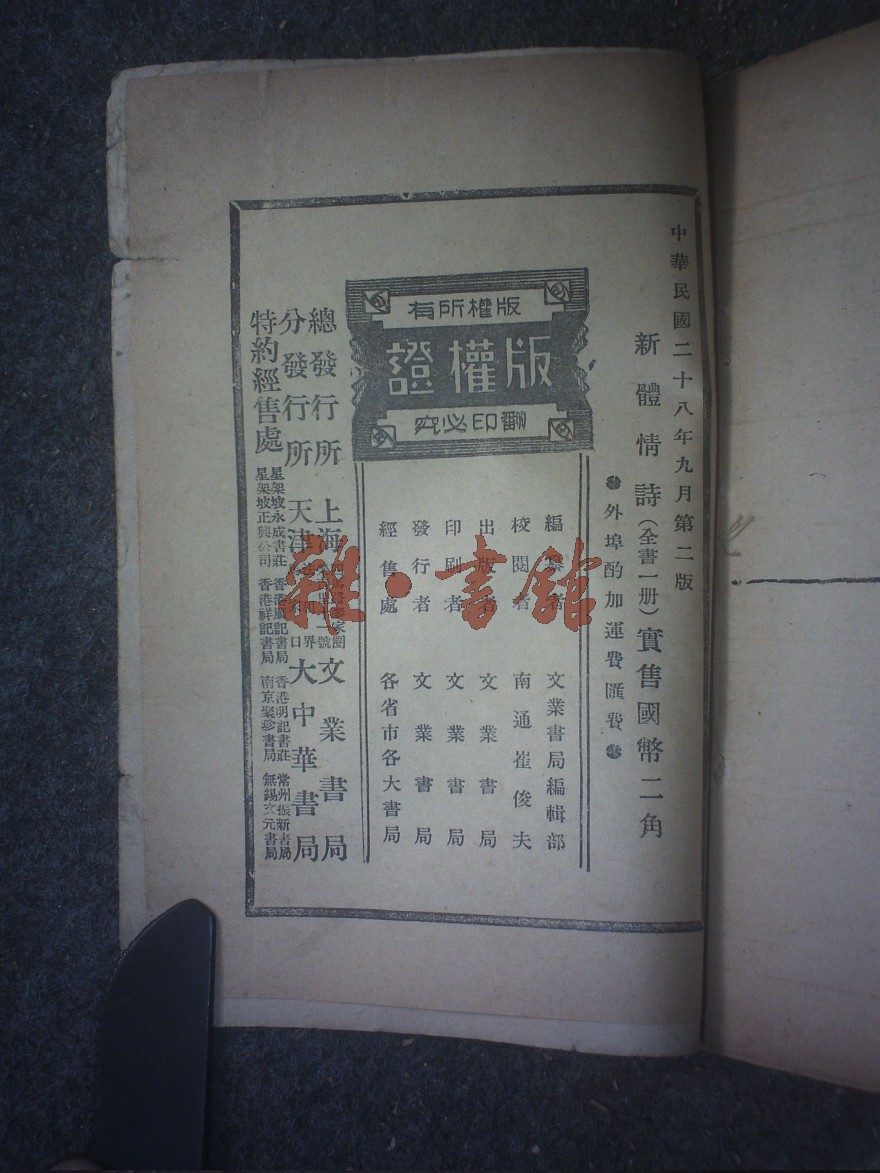 中華民國二十八年九月第二版
新體情詩（全書一册）實售國幣二角
外埠酌加運費匯費
版權所有
版權證
翻印必究
編纂者 文業書局編輯部
校閱者 南通崔俊夫
出版者 文業書局
印刷者 文業書局
發行者 文業書局
經售處 各省市各大書局
總發行所 上海 文業書局
分發行所 天津 大中華書局
特約經售處
星架坡永成書莊 香港廣記書局 香港明記書莊 常州振新書局
星架坡正興公司 香港祥記書局 南京聚珍書局 無錫文元書局
雜·書館